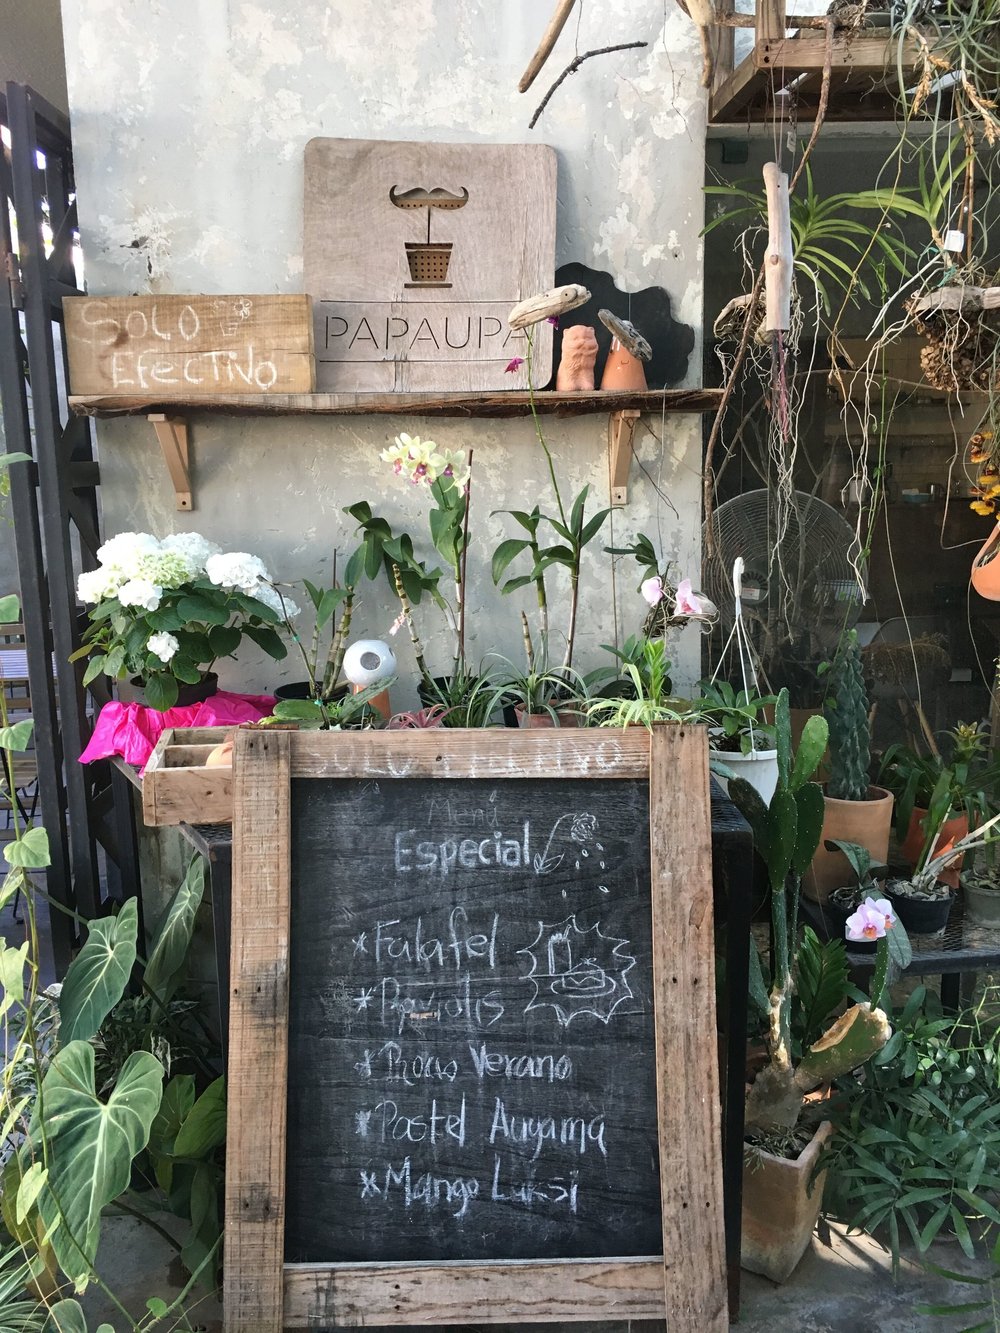 SOLO
EFECTIVO
PAPAUPA
SOLO EFECTIVO
Menú
Especial
*Falafel
*Raviolis
*Rocio Verano
*Pastel Auyama
*Mango Luksi